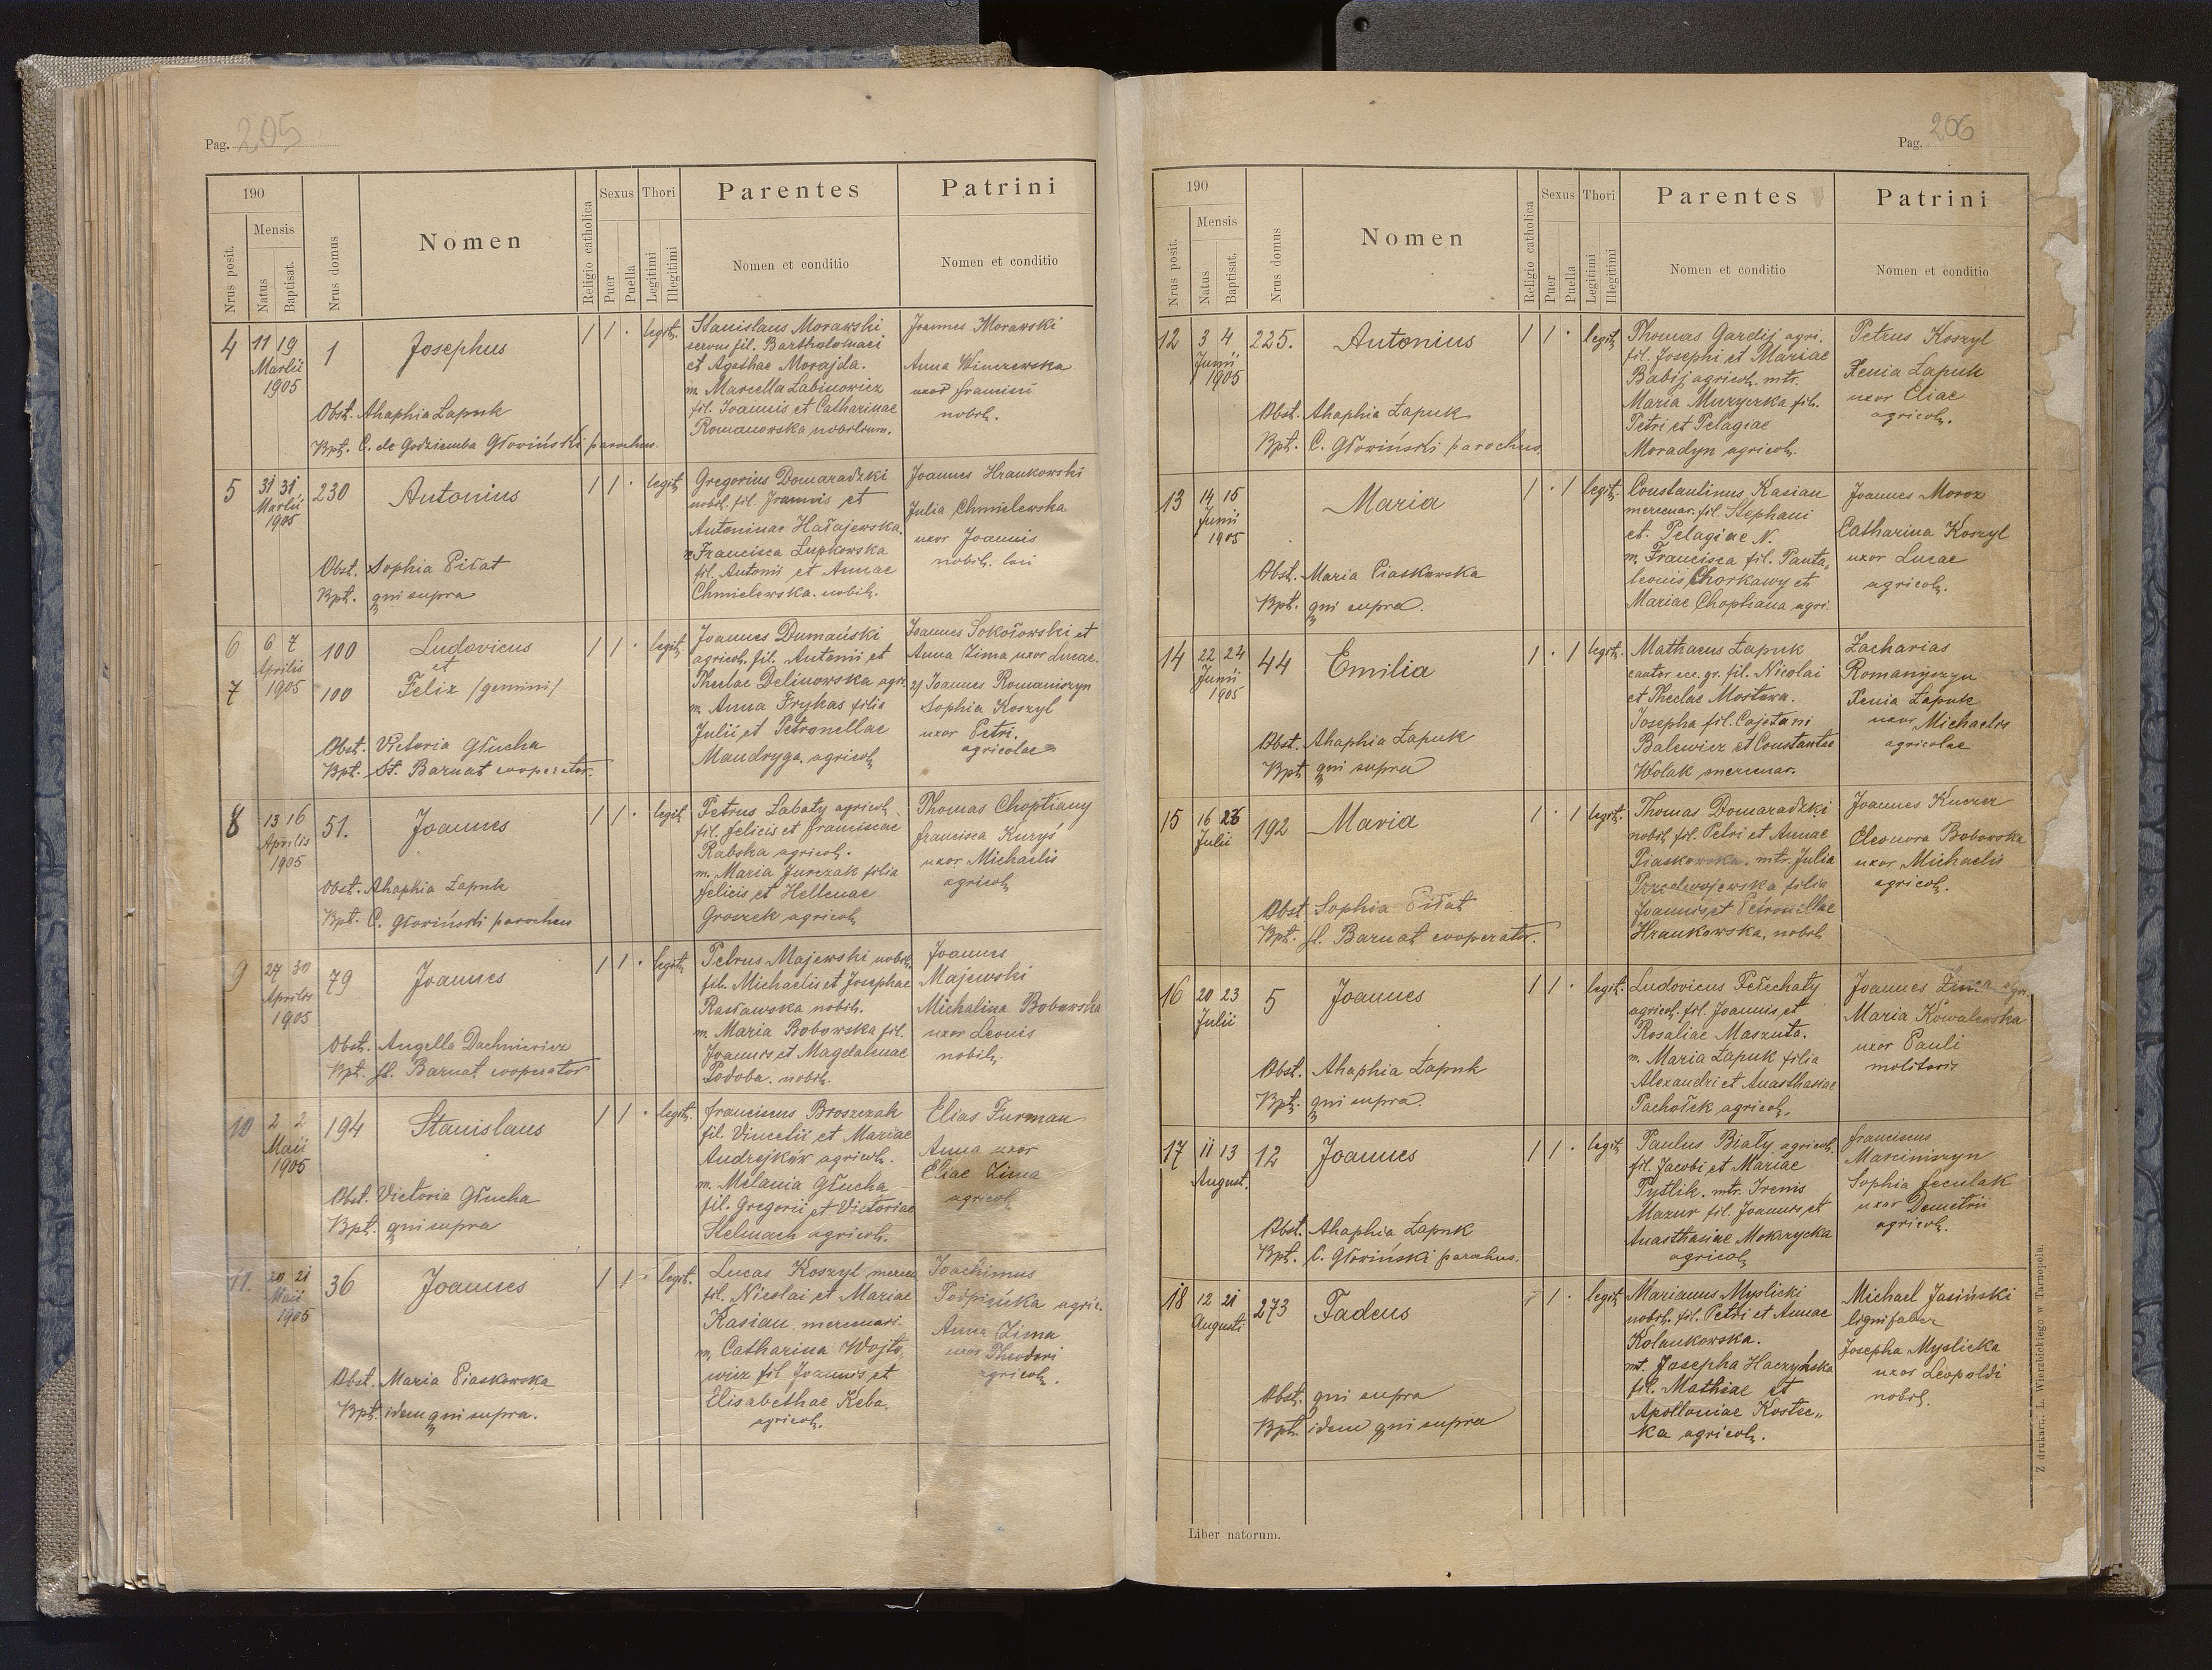 Pag. 205
190
Nrus posit.
Mensis
Natus
Baptisat.
Nrus domus
Nomen
Religio catholica
Sexus
Puer
Puella
Thori
Legitimi
Illegitimi
Parentes
Nomen et conditio
Patrini
Nomen et conditio
4
11 19
Martii
1905
1
Josephus
1 1 · legit.
Stanislaus Morawski
servus fil. Bartholomaei
et Agathae Morajda.
m. Marcella Łabinowicz
fil. Joannis et Catharinae
Romanowska nobilium.
Joannes Morawski
Anna Winczewska
uxor Francisci
nobil.
Obst. Ahaphia Łapuk
Bpt. C. de Godziemba Głowiński parochus.
5
31 31
Martii
1905
230
Antonius
1 1 · legit.
Gregorius Domaradzki
nobil. fil. Joannis et
Antoninae Hałajewska.
m. Francisca Łupkowska
fil. Antonii et Annae
Chmielewska. nobil.
Joannes Hrankowski
Julia Chmielewska
uxor Joannis
nobil.
Obst. Sophia Piłat
Bpt. qui supra
6
6 7
Aprilis
1905
100
Ludovicus
et
7
100
Felix /gemini/
1 1 · legit.
Joannes Dumański
agricol. fil. Antonii et
Theclae Delinowska agr.
m. Anna Frykas filia
Julii et Petronellae
Mandryga. agricol.
Joannes Sokołowski et
Anna Zima uxor Lucae.
2) Joannes Romaniszyn
Sophia Koszyl
uxor Petri.
agricolae
Obst. Victoria Głucha
Bpt. St. Barnat cooperator.
8
13 16
Aprilis
1905
51.
Joannes
1 1 · legit.
Petrus Łabaty agricol.
fil. Felicis et Franciscae
Rabska agricol.
m. Maria Jurczak filia
Felicis et Hellenae
Groszek agricol.
Thomas Choptiany
Francisca Kuryś
uxor Michaelis
agricol.
Obst. Ahaphia Łapuk
Bpt. C. Głowiński parochus
9
27 30
Aprilis
1905
79
Joannes
1 1 · legit.
Petrus Majewski nobil.
fil. Michaelis et Josephae
Rasławska nobil.
m. Maria Bobowska fil.
Joannis et Magdalenae
Podoba. nobil.
Joannes
Majewski
Michalina Bobowska
uxor Leonis
nobil.
Obst. Angella Dachniewicz
Bpt. St. Barnat cooperator
10
2 2
Maii
1905
194
Stanislaus
1 1 · legit.
Franciscus Broszczak
fil. Vincetii et Mariae
Andrejków agricol.
m. Melania Głucha
fil. Gregorii et Victoriae
Stelmach agricol.
Elias Furman
Anna uxor
Eliae Zima
agricol.
Obst. Victoria Głucha
Bpt. qui supra
11.
20 21
Maii
1905
36
Joannes
1 1 · legit.
Lucas Koszyl mercen.
fil. Nicolai et Mariae
Kasian. mercenari.
m. Catharina Wojto„
wicz fil Joannis et
Elisabethae Keba.
agricol.
Joachimus
Podpieńka agric.
Anna Zima
uxor Theodori
agricol.
Obst. Maria Piaskowska
Bpt. idem qui supra.
Pag. 206
190
Nrus posit.
Mensis
Natus
Baptisat.
Nrus domus
Nomen
Religio catholica
Sexus
Puer
Puella
Thori
Legitimi
Illegitimi
Parentes
Nomen et conditio
Patrini
Nomen et conditio
12
3 4
Junii
1905
225.
Antonius
1 1 · legit.
Thomas Gardij agri.
fil. Josephi et Mariae
Babij agricol. mtr.
Maria Muryczka fil.
Petri et Pelagiae
Moradyn agricol.
Petrus Koszyl
Xenia Łapuk
uxor Eliae
agricol.
Obst. Ahaphia Łapuk
Bpt. C. Głowiński parochus.
13
14 15
Junii
1905
Maria
1 · 1 legit.
Constantinus Kasian
mercenar. fil. Stephani
et Pelagiae N.
m. Francisca fil. Panta„
leonis Chorkawy et
Mariae Choptiana agri.
Joannes Moroz
Catharina Koszyl
uxor Lucae
agricol.
Obst. Maria Piaskowska
Bpt. qui supra.
14
22 24
Junii
1905
44
Emilia
1 · 1 legit.
Mathaeus Łapuk
cantor ecc. gr. fil. Nicolai
et Theclae Mostowa.
Josepha fil. Cajetani
Balewicz et Constantae
Wolak mercenar.
Zacharias
Romanyszyn
Xenia Łapuk
uxor Michaelis
agricolae
Obst. Ahaphia Łapuk
Bpt. qui supra
15
16 23
Julii
192
Maria
1 · 1 legit.
Thomas Domaradzki
nobil. fil. Petri et Annae
Piaskowska. mtr. Julia
Przedwojewska filia
Joannis et Petronillae
Hrankowska, nobil.
Joannes Kuczer
Eleonora Bobowska
uxor Michaelis
agricol.
Obst. Sophia Piłat
Bpt. St. Barnat cooperator.
16
20 23
Julii
5
Joannes
1 1 · legit.
Ludovicus Pełechaty
agricol. fil. Joannis et
Rosaliae Maszuta.
m. Maria Łapuk filia
Alexandri et Anasthasiae
Pachołek agricol.
Joannes Zima agr.
Maria Kowalewska
uxor Pauli
molitoris
Obst. Ahaphia Łapuk
Bpt. qui supra.
17
11 13
August.
12
Joannes
1 1 · legit.
Paulus Biały agricol.
fil. Jacobi et Mariae
Pystlik. mtr. Irenis
Mazur fil. Joannis et
Anasthasiae Mokrzycka
agricol.
Franciscus
Marciniszyn
Sophia Feculak
uxor Demetrii
agricol.
Obst. Ahaphia Łapuk
Bpt. C. Głowiński parochus.
18
12 21
Augusti
273
Tadeus
1 1 · legit.
Marianus Myslicki
nobil. fil. Petri et Annae
Kolankowska.
mt. Josepha Haczyńska
fil. Mathiae et
Apolloniae Kostec„
ka agricol.
Michael Jasiński
lignifaber
Josepha Myslicka
uxor Leopoldi
nobil.
Obst. qui supra
Bpt. idem qui supra
Liber natorum.
Z drukarn. L. Wierzbickiego w Tarnopolu.